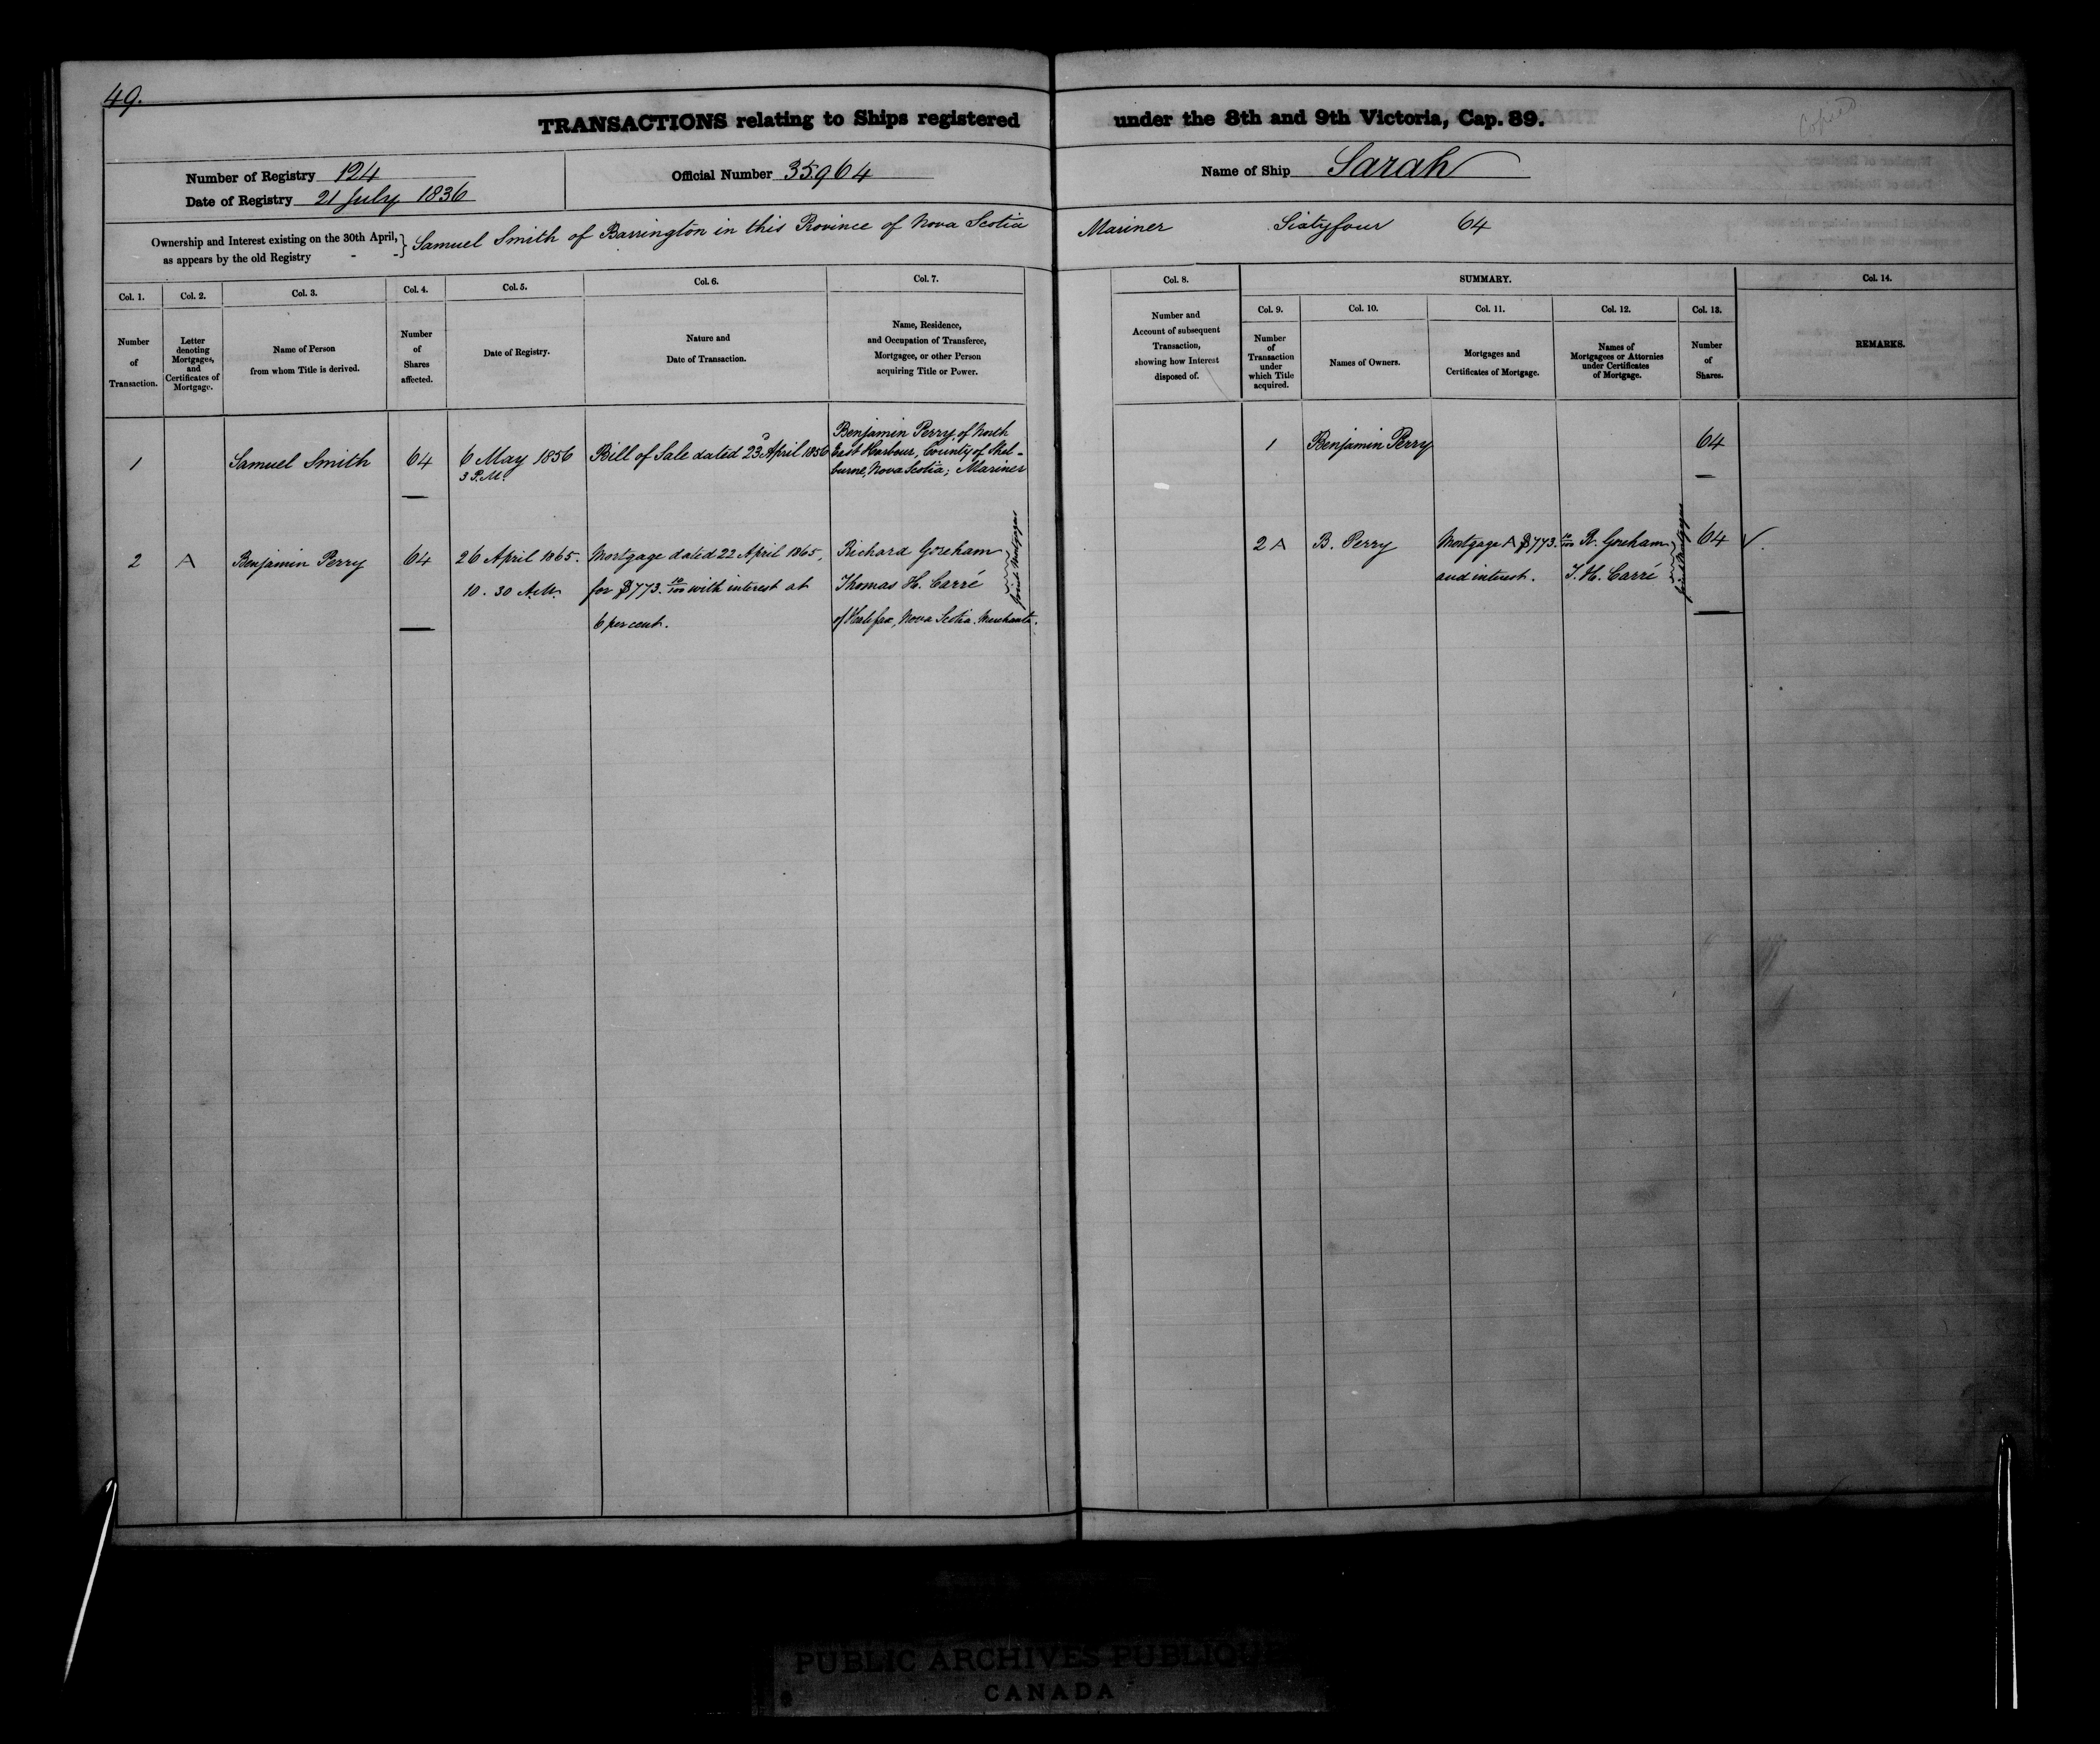 49.
TRANSACTIONS relating to Ships registered under the 8th and 9th Victoria, Cap. 89.
Copied
Number of Registry 124
Date of Registry 21 July 1836
Official Number 35964
Name of Ship Sarah
Ownership and Interest existing on the 30th April,
as appears by the old Registry - -
} Samuel Smith of Barrington in this Province of Nova Scotia Mariner Sixtyfour 64
Col. 1.
Number
of
Transaction.
Col. 2.
Letter
denoting
Mortgages,
and
Certificates of
Mortgage.
Col. 3.
Name of Person
from whom Title is derived.
Col. 4.
Number
of
Shares
affected.
Col. 5.
Date of Registry.
Col. 6.
Nature and
Date of Transaction.
Col. 7.
Name, Residence,
and Occupation of Transferee,
Mortgagee, or other Person
acquiring Title or Power.
Col. 8.
Number and
Account of subsequent
Transaction,
showing how Interest
disposed of.
SUMMARY.
Col. 9.
Number
of
Transaction
under
which Title
acquired.
Col. 10.
Names of Owners.
Col. 11.
Mortgages and
Certificates of Mortgage.
Col. 12.
Names of
Mortgagees or Attornies
under Certificates
of Mortgage.
Col. 13.
Number
of
Shares.
Col. 14.
REMARKS.
1
Samuel Smith
64
6 May 1856
3 P.M.
Bill of Sale dated 23d April 1856
Benjamin Perry, of North
East Harbour, County of Shel-
burne, Nova Scotia; Mariner
1
Benjamin Perry
64
2
A
Benjamin Perry
64
26 April 1865.
10.30 A.M.
Mortgage dated 22 April 1865,
for $773. 10/100 with interest at
6 per cent.
Richard Goreham
Thomas H. Carré
of Halifax, Nova Scotia. Merchants.
Joint Mortgagees
2 A
B. Perry
Mortgage A $773. 10/100
and interest.
R. Goreham
T. H. Carré
Joint Mortgagees
64
PUBLIC ARCHIVES PUBLIQUES
CANADA